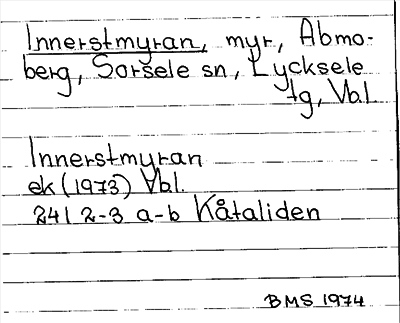 Innerstmyran, myr, Abmo-
berg, Sorsele sn, Lycksele
tg, Vbl.
Innerstmyran
ek (1973) Vbl.
241 2-3 a-b Kåtaliden
BMS 1974